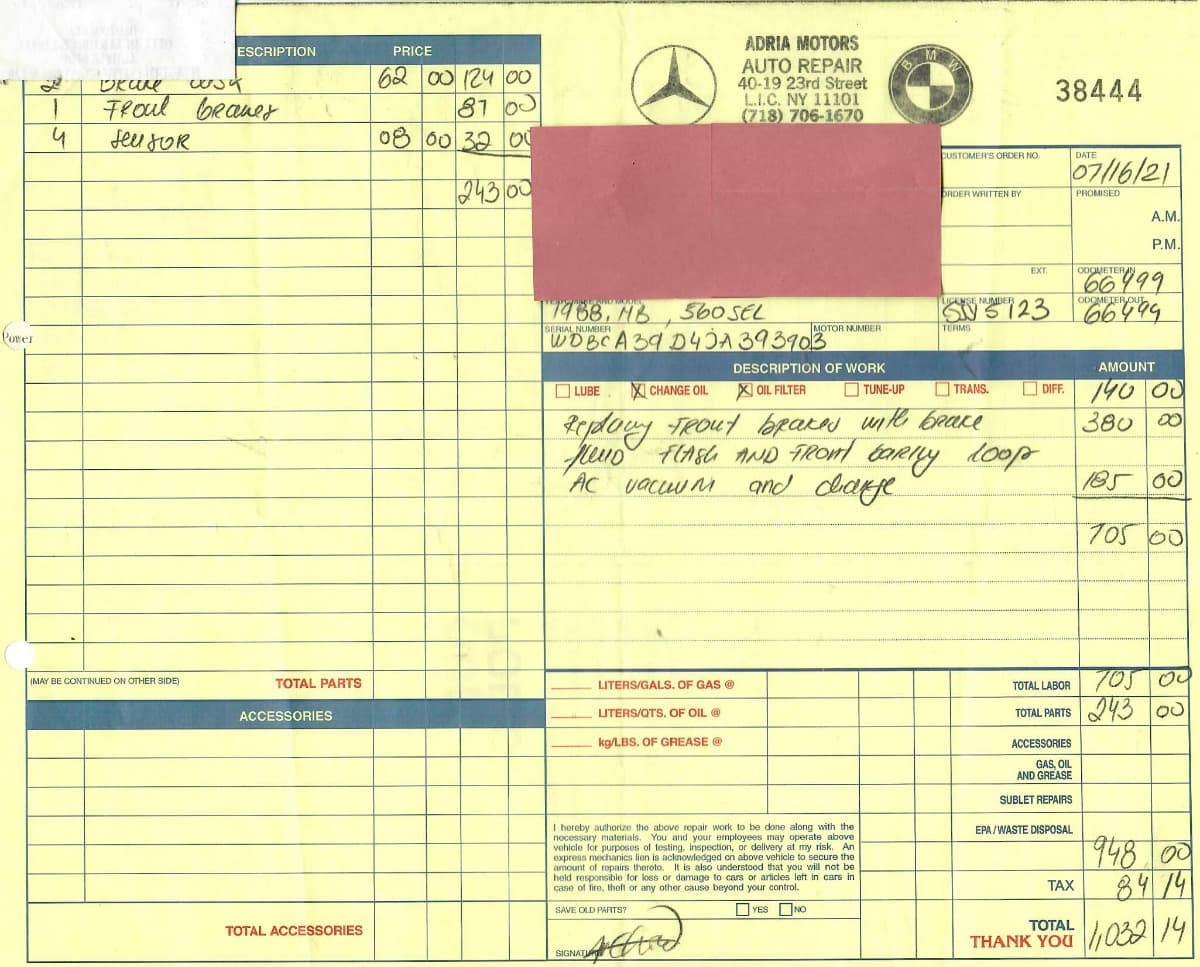 ESCRIPTION PRICE
2 Brake disk 62 00 124 00
1 Front brakes 87 00
4 sensor 08 00 32 00
243 00
Power
(MAY BE CONTINUED ON OTHER SIDE) TOTAL PARTS
ACCESSORIES
TOTAL ACCESSORIES
ADRIA MOTORS
AUTO REPAIR
40-19 23rd Street
L.I.C. NY 11101
(718) 706-1670
BMW
38444
CUSTOMER'S ORDER NO. DATE
07/16/21
ORDER WRITTEN BY PROMISED
A.M.
P.M.
EXT. ODOMETER IN
66499
YEAR, MAKE AND MODEL LICENSE NUMBER ODOMETER OUT
1988, MB, 560SEL 66499
SERIAL NUMBER MOTOR NUMBER TERMS
WDBCA39D4JA393903
DESCRIPTION OF WORK AMOUNT
LUBE X CHANGE OIL X OIL FILTER TUNE-UP TRANS. DIFF. 140 00
Replacing front brakes with brake 380 00
FLASH AND FRONT
AC vacuum and charge 185 00
705 00
LITERS/GALS. OF GAS @ TOTAL LABOR 705 00
LITERS/QTS. OF OIL @ TOTAL PARTS 243 00
kg/LBS. OF GREASE @ ACCESSORIES
GAS, OIL
AND GREASE
SUBLET REPAIRS
EPA / WASTE DISPOSAL
948 00
TAX 84 14
TOTAL 1,032 14
THANK YOU
I hereby authorize the above repair work to be done along with the
necessary materials. You and your employees may operate above
vehicle for purposes of testing, inspection, or delivery at my risk. An
express mechanics lien is acknowledged on above vehicle to secure the
amount of repairs thereto. It is also understood that you will not be
held responsible for loss or damage to cars or articles left in cars in
case of fire, theft or any other cause beyond your control.
SAVE OLD PARTS? YES NO
SIGNATURE